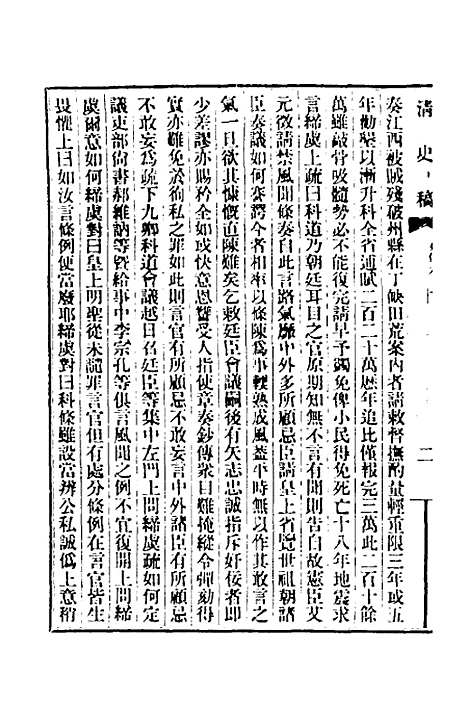 清史稿
二
奏江西被賊殘破州縣在丁缺田荒案內者請敕督撫酌量輕重限三年或五
年勸墾以漸升科全省逋賦二百二十萬歷年追比僅報完三萬此二百十餘
萬雖敲骨吸髓勢必不能復完請早予蠲免俾小民得免死亡十八年地震求
言締虞上疏曰科道乃朝廷耳目之官原期知無不言有聞則告自故憲臣艾
元徵請禁風聞條奏自此言路氣靡中外多所顧忌臣請皇上省覽世祖朝諸
臣奏議如何謇諤今者相率以條陳為事輭熟成風蓋平時無以作其敢言之
氣一旦欲其慷慨直陳難矣乞敕廷臣會議嗣後有矢志忠誠指斥奸佞者即
少差謬亦賜矜全如或快意恩讐受人指使章奏鈔傳眾目難掩縱令彈劾得
實亦難免於徇私之罪如此則言官有所顧忌不敢妄言中外諸臣有所顧忌
不敢妄為疏下九卿科道會議越日召廷臣等集中左門上問締虞疏如何定
議吏部尚書郝維訥等暨給事中李宗孔等俱言風聞之例不宜復開上問締
虞爾意如何締虞對曰皇上明聖從未誣罪言官但有處分條例在言官皆生
畏懼上曰如汝言條例便當廢耶締虞對曰科條雖設當辨公私誠偽上意稍